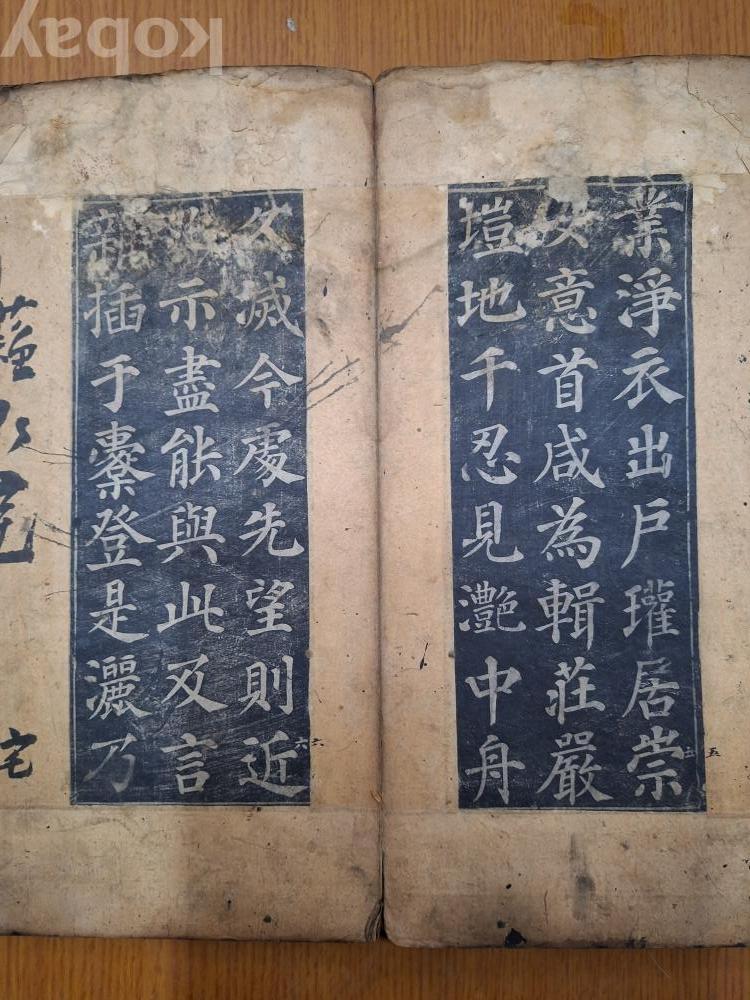 業淨衣出戶瓘居崇
意首咸為輯莊嚴
塏地千忍見灔中舟
五
久滅今處先望則近
示盡能與此及言
插于橐登是灑乃
六
宅
kobay